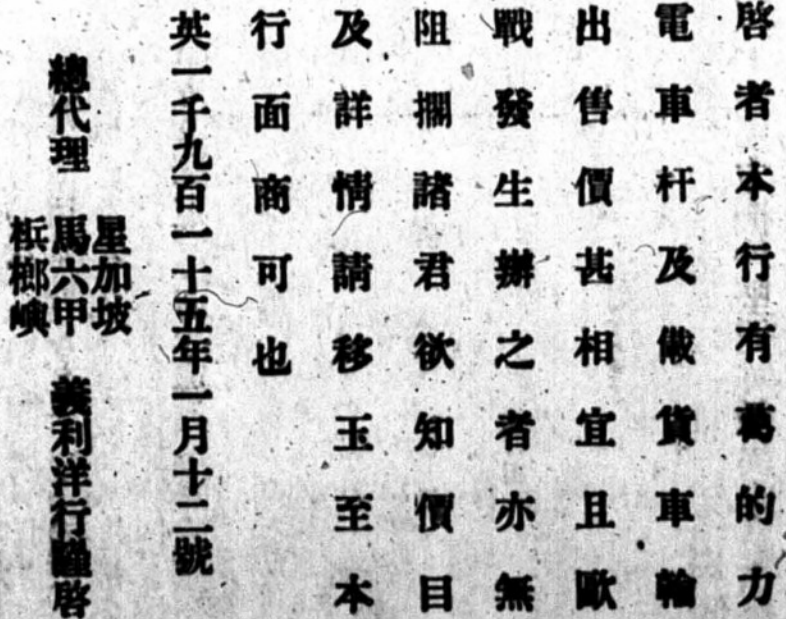 啓者本行有萬的力
電車杆及儎貨車輪
出售價甚相宜且歐
戰發生辦之者亦無
阻擱諸君欲知價目
及詳情請移玉至本
行面商可也
英一千九百一十五年一月十二號
總代理
星加坡
馬六甲
梹榔嶼
義利洋行謹啓